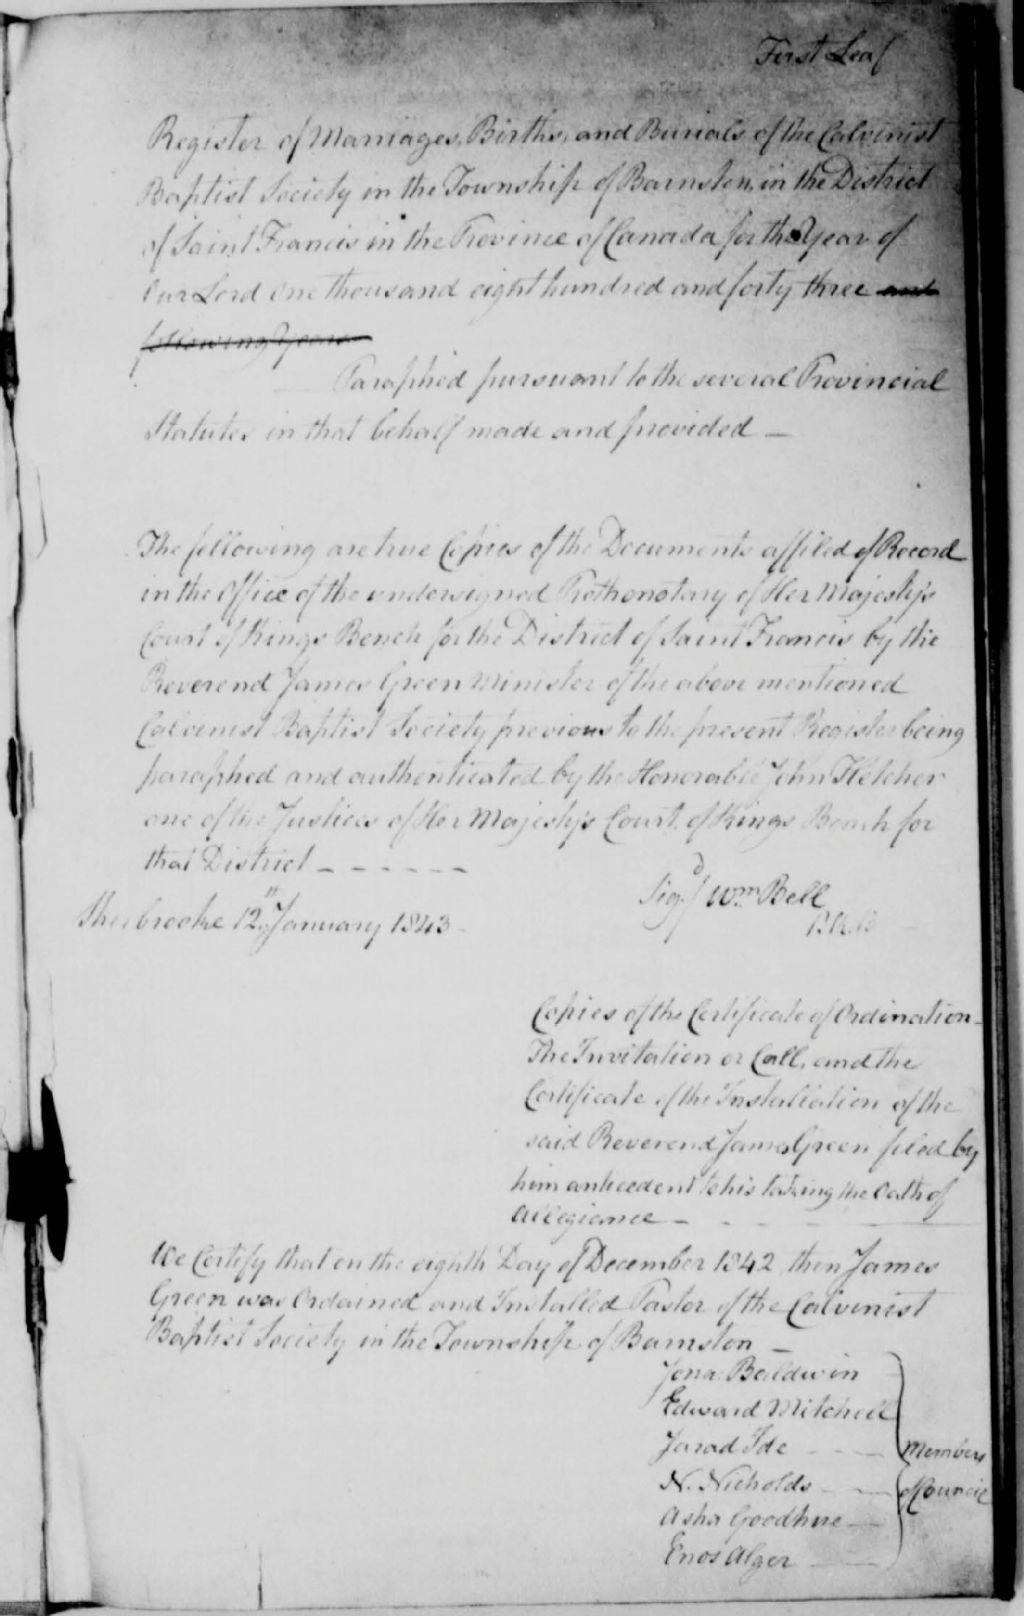 First Leaf
Register of Marriages, Births, and Burials of the Calvinist
Baptist Society in the Township of Barnston, in the District
of Saint Francis in the Province of Canada for the Year of
Our Lord One thousand eight hundred and forty three and
following Years
Paraphed pursuant to the several Provincial
Statutes in that behalf made and provided —
The following are true Copies of the Documents affiled of Record
in the Office of the undersigned Prothonotary of Her Majesty's
Court of Kings Bench for the District of Saint Francis by the
Reverend James Green Minister of the above mentioned
Calvinist Baptist Society previous to the present Register being
paraphed and authenticated by the Honorable John Fletcher
one of the Justices of Her Majesty's Court of Kings Bench for
that District - - - - - -
Sigd / Wm Bell
Sherbrooke 12th January 1843 -
P.K.B
Copies of the Certificate of Ordination -
The Invitation or Call, and the
Certificate of the Installation of the
said Reverend James Green filed by
him antecedent to his taking the Oath of
Allegiance - - - - -
We Certify that on the eighth Day of December 1842, then James
Green was Ordained and Installed Pastor of the Calvinist
Baptist Society in the Township of Barnston —
Jona. Baldwin
Edward Mitchell
Jarad Ide - - - Members
N. Nicholds - - of Council
Asha Goodhue —
Enos Alger —